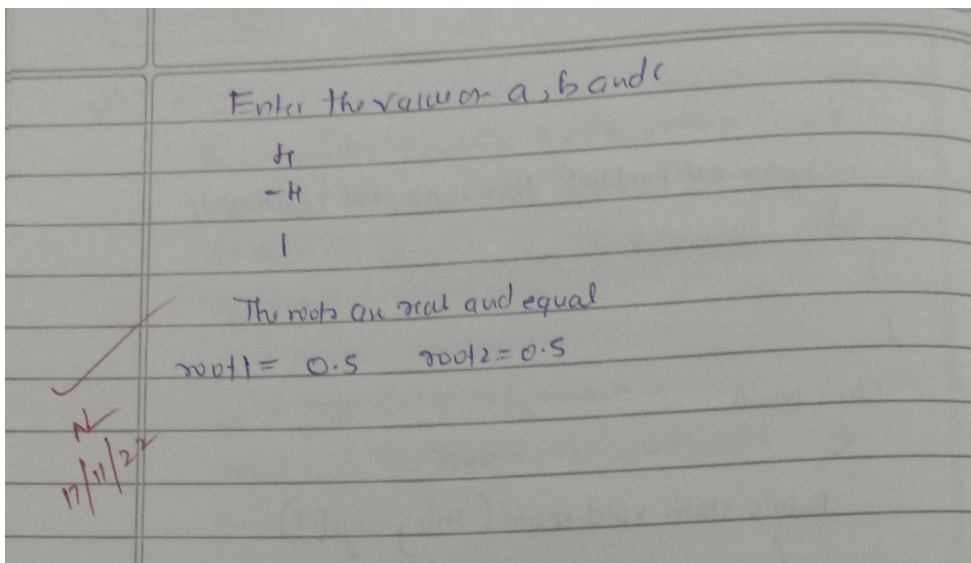 Enter the values of a, b and c
4
-4
1
The roots are real and equal
root1 = 0.5 root2 = 0.5
17/11/22